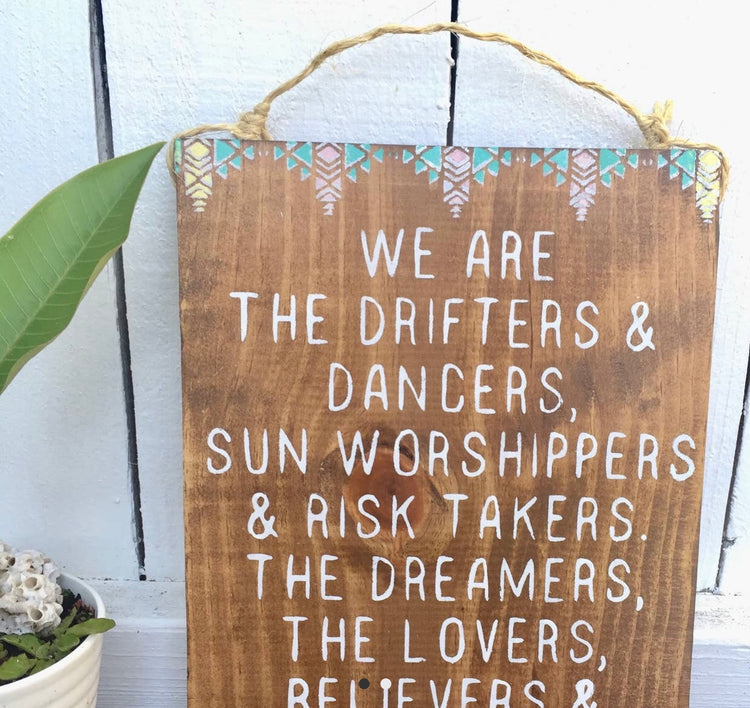 WE ARE
THE DRIFTERS &
DANCERS,
SUN WORSHIPPERS
& RISK TAKERS.
THE DREAMERS,
THE LOVERS,
BELIEVERS &